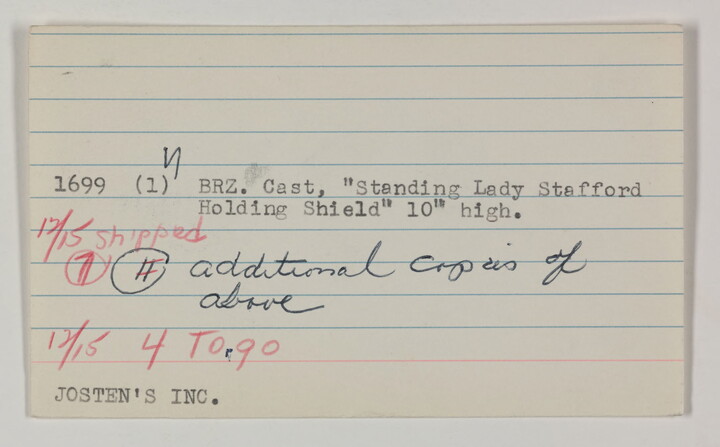 1699 (1) BRZ. Cast, "Standing Lady Stafford
Holding Shield" 10" high.
12/15 shipped
1 4 additional copies of
above
12/15 4 TO go
JOSTEN'S INC.